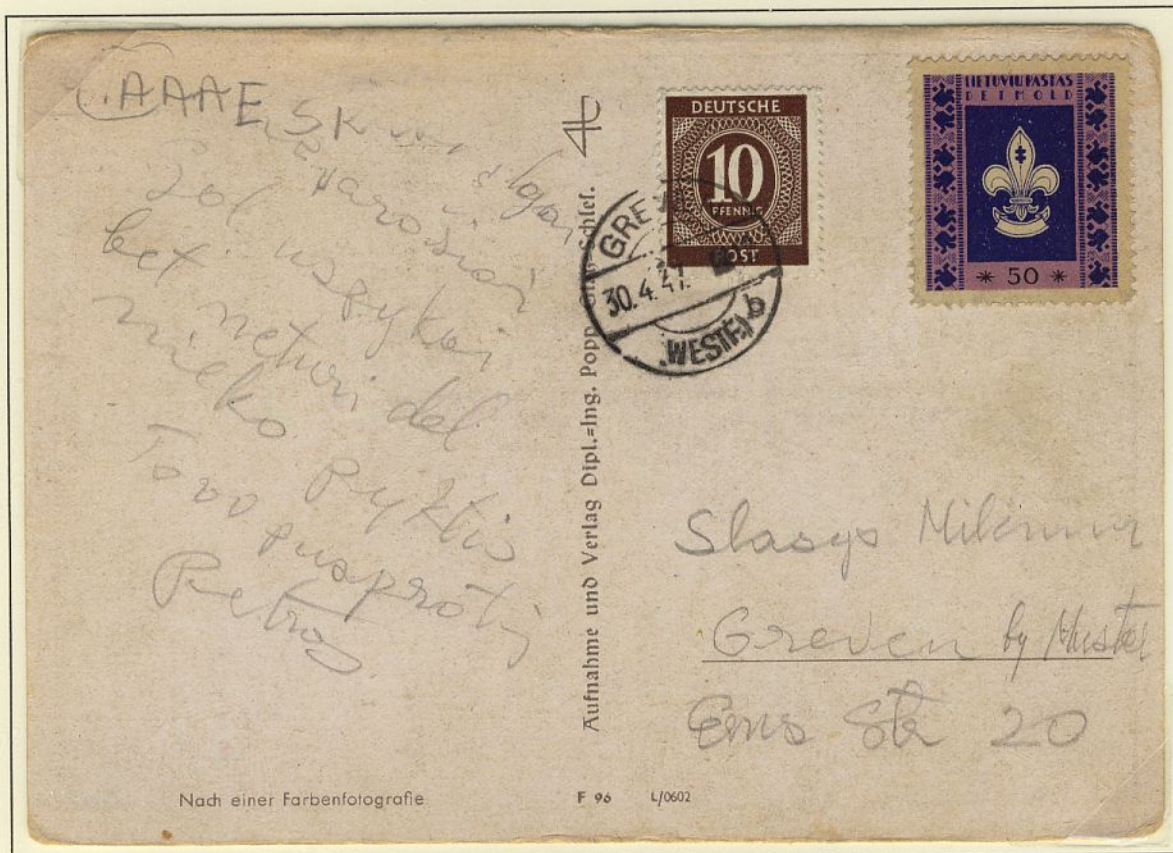 AAAE, SK
Žol. uspykai
bet neturi del
nieko pyktis
Tavo
Petras
Aufnahme und Verlag Dipl.=Ing. Popp,
DEUTSCHE
10
PFENNIG
POST
GREVEN
30.4.47.
(WESTF.) b
LIETUVIU PASTAS
DETMOLD
* 50 *
Stasys
Greven by Muster
Ems Str 20
Nach einer Farbenfotografie
F 96 L/0602